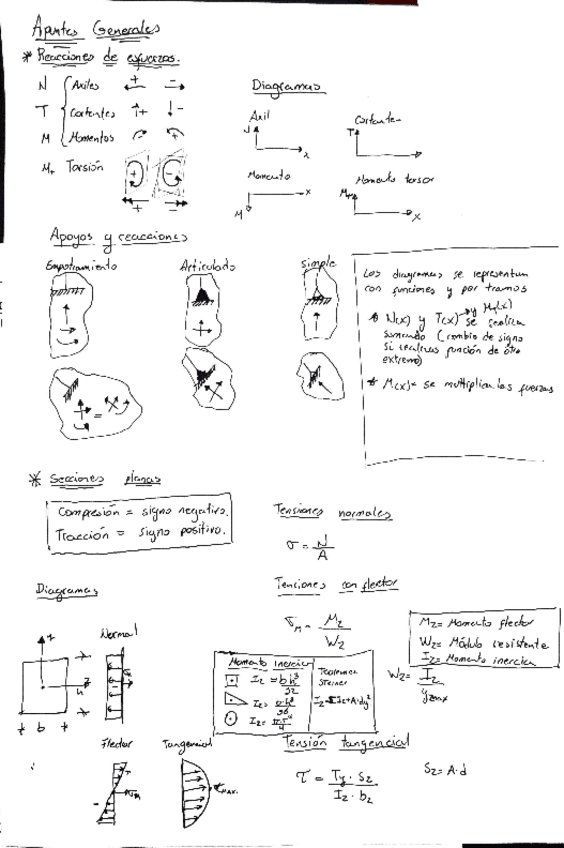 Apuntes Generales
* Reacciones de esfuerzos.
N Axiles + -
T Cortantes + -
M Momentos - +
Mt Torsión + -
Diagramas
Axil
N
x
Cortante
T
Momento
x
M
Momento torsor
Mt
x
Apoyos y reacciones
Empotramiento
Articulado
simple
=
Los diagramas se representan
con funciones y por tramos
* N(x) y T(x) y Mt(x) se realiza
sumando (cambio de signo
si realizas función de otro
extremo)
* M(x)= se multiplican las fuerzas
* Secciones planas
Compresión = signo negativo.
Tracción = signo positivo.
Tensiones normales
σ = N/A
Diagramas
Tensiones con flector
σM = Mz/Wz
Mz= Momento flector
Wz= Módulo resistente
Iz= Momento inercia
Wz= Iz/ymax
Normal
h
b
Momento inercia
Iz = bh³/12
Iz= bh³/36
Iz= πr⁴/4
Teorema
Steiner
Iz=Iz+A·dy²
Flector
Tangencial
τmax.
Tensión tangencial
τ = Ty · Sz / Iz · bz
Sz= A·d